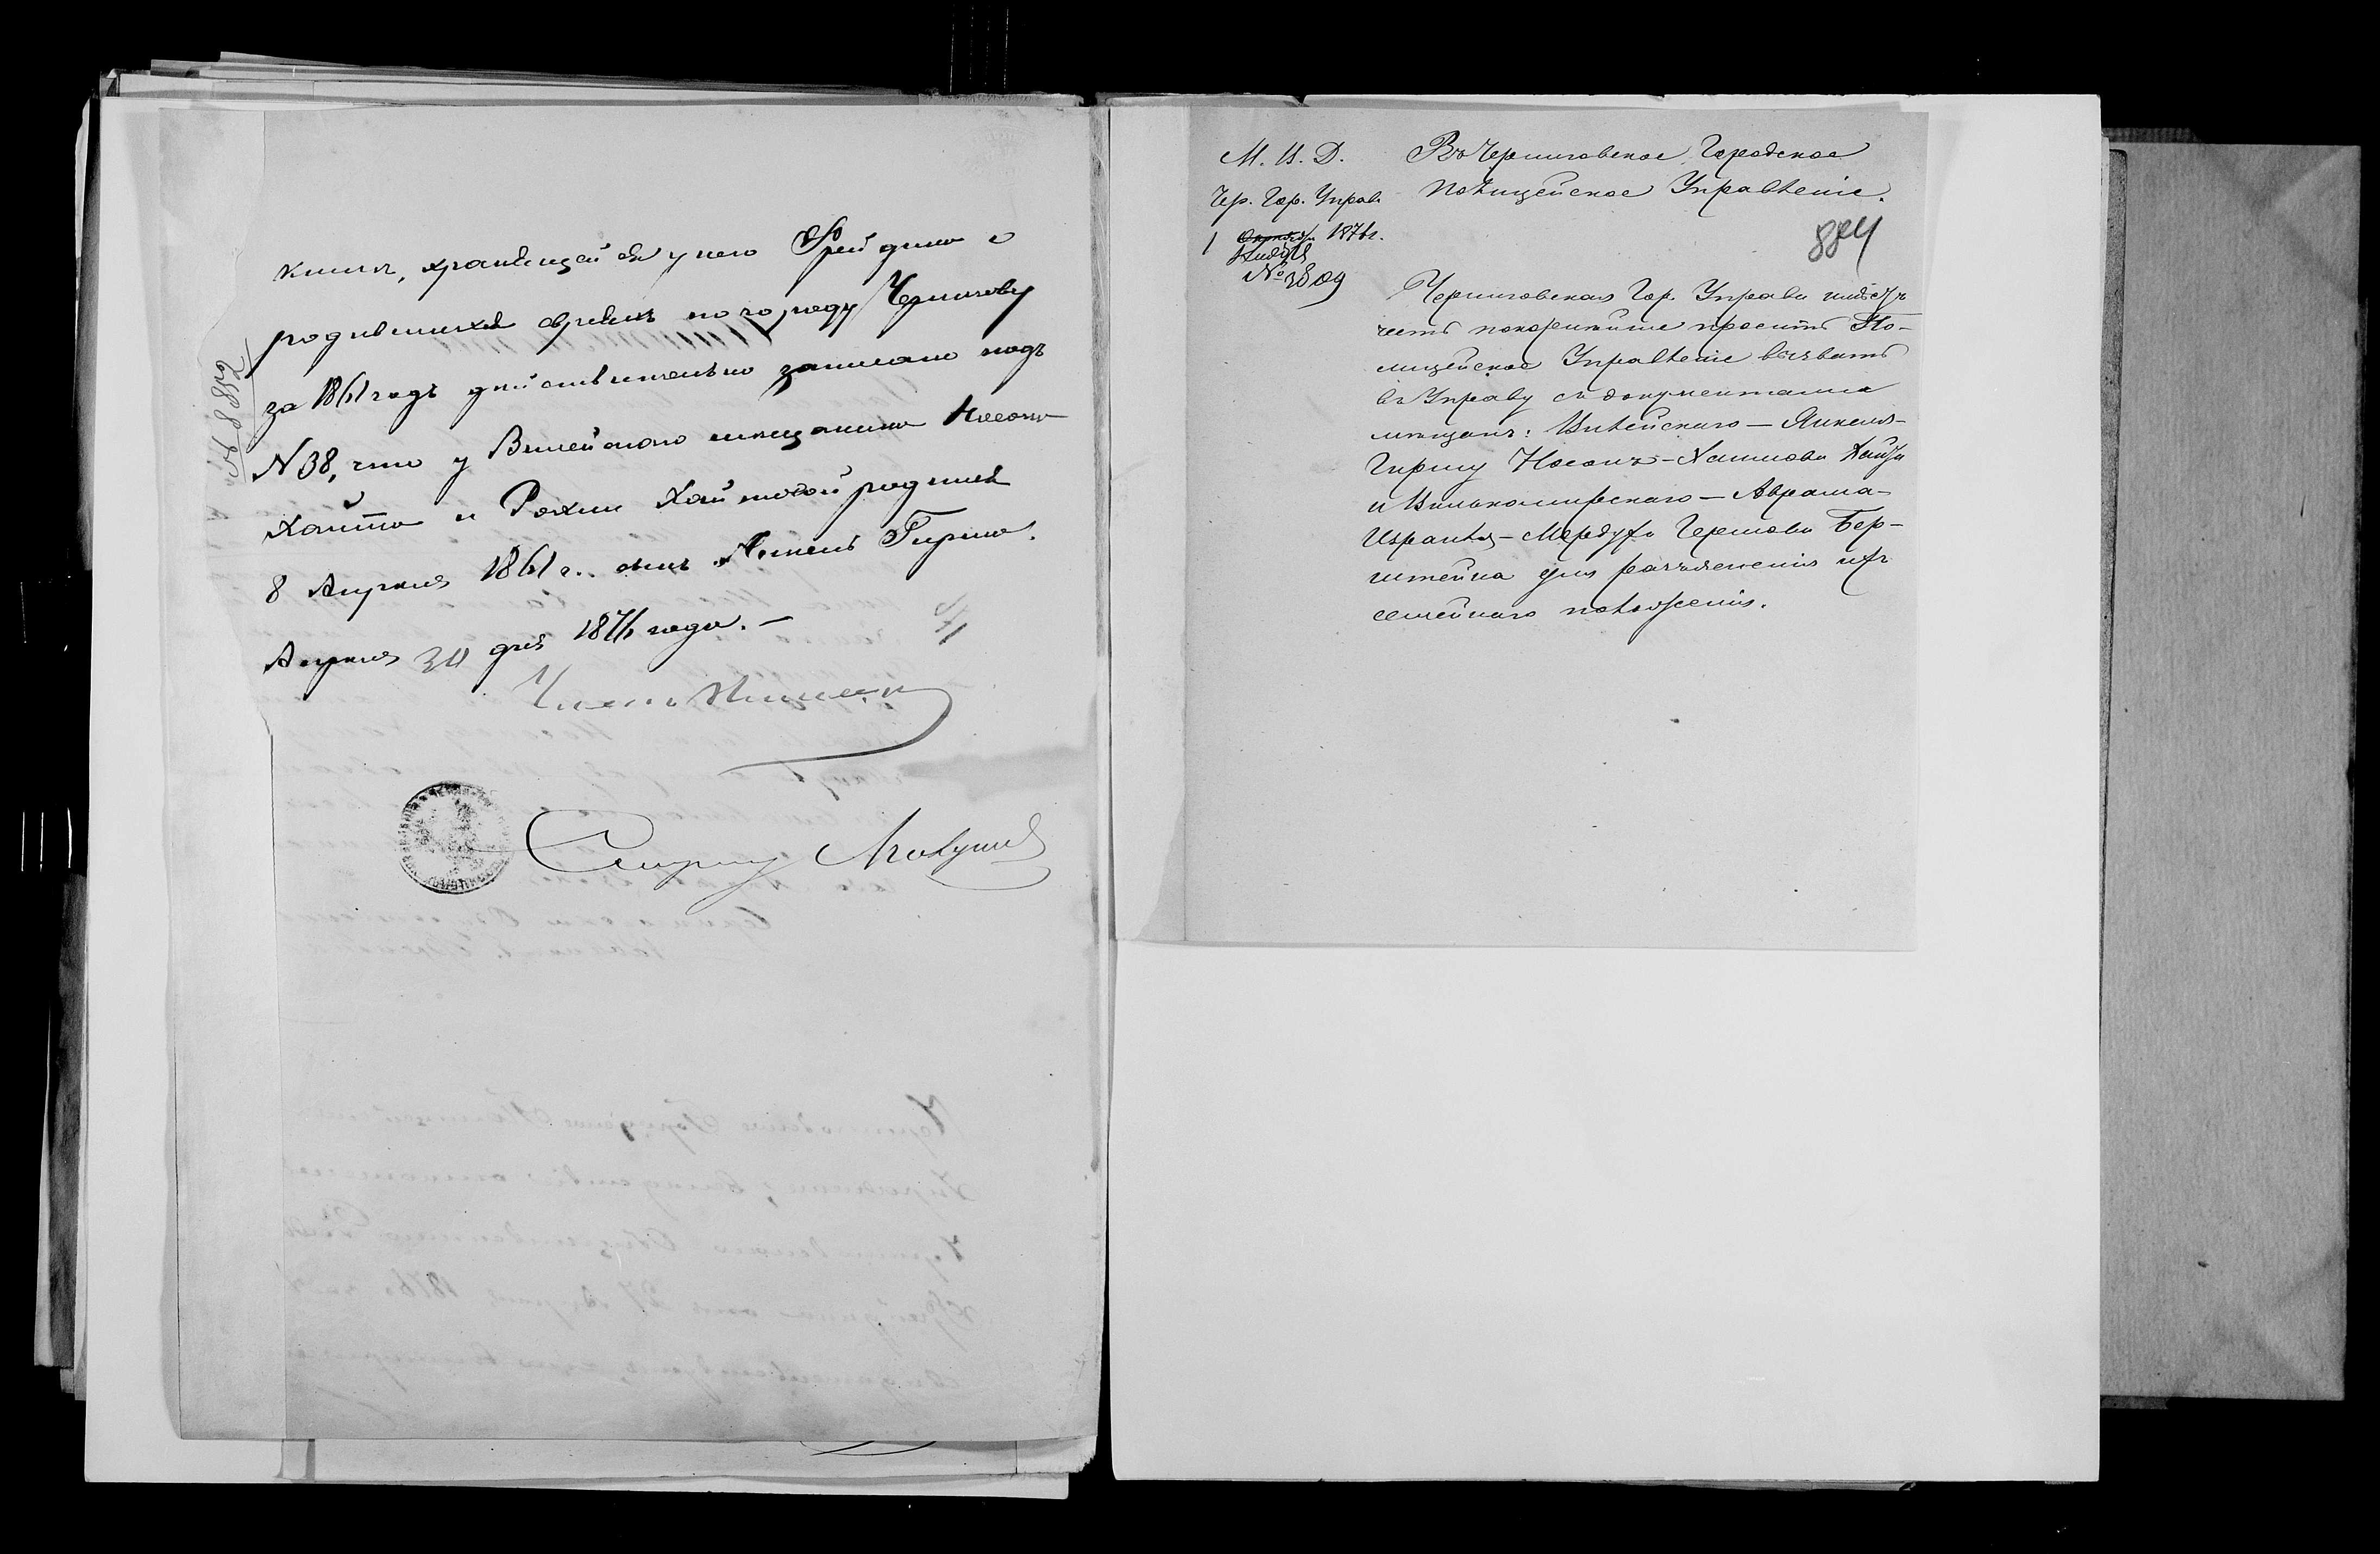 книгѣ, хранящейся у него Фрейдина о
родившихся евреяхъ по городу Чернигову
за 1861 годъ действительно записано подъ
N 38, что у Вилейскаго мещанина Носона
Хаита и Рохли Хаитовой родился
8 Апреля 1861 г. сынъ Янкель Гирша.
Апреля 30 дня 1876 года.—
№ 8852
М. И. Д.
Чер. Гор. Управ.
1 1876 г.
№ 3809
Въ Черниговское Городское
Полицейское Управленіе.
884
Черниговская Гор. Управа имѣетъ
честь покорнѣйше просить По-
лицейское Управленіе вызвать
въ Управу съ документами
мѣщанъ: Вилейскаго — Янкеля-
Гиршу Носонъ-Хаимова Хаита
и Вилькомирскаго — Абрама-
Израиля-Мордуха Гершова Бер-
штейна для разъясненія ихъ
семейнаго положенія.